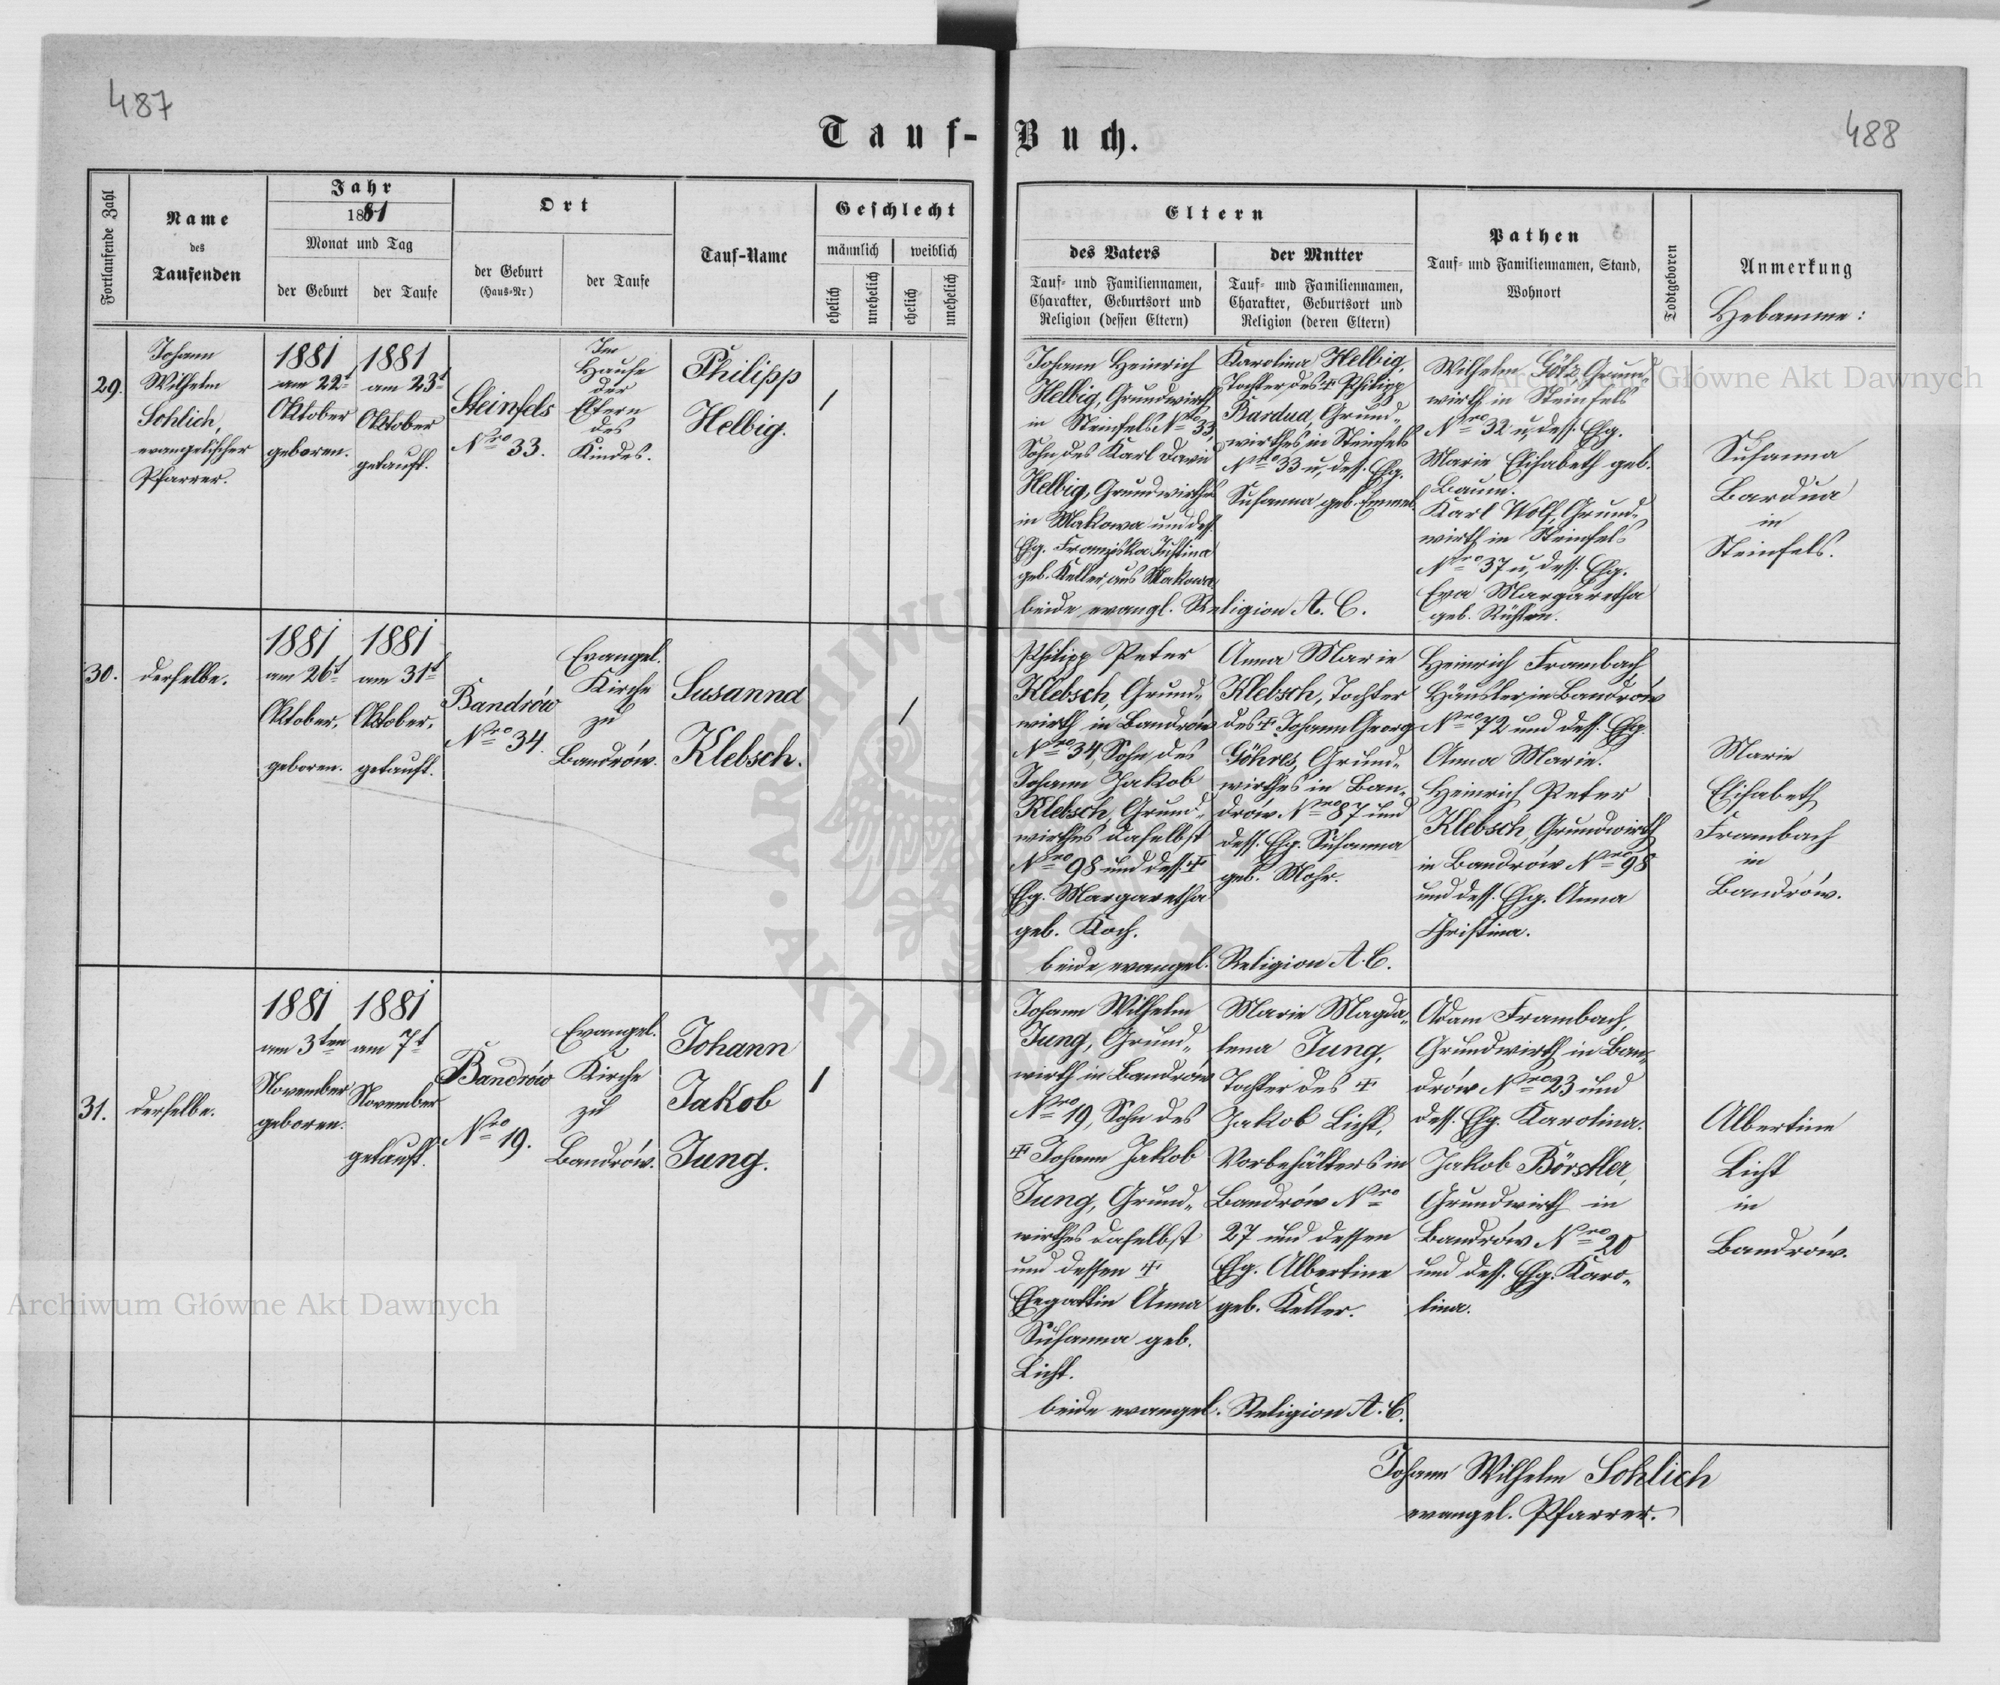 487
488
Tauf-Buch.
Fortlaufende Zahl
Name
des
Taufenden
Jahr
1881
Monat und Tag
der Geburt
der Taufe
Ort
der Geburt
(Haus-Nr.)
der Taufe
Tauf-Name
Geschlecht
männlich
weiblich
ehelich
unehelich
ehelich
unehelich
Eltern
des Vaters
Tauf- und Familiennamen,
Charakter, Geburtsort und
Religion (dessen Eltern)
der Mutter
Tauf- und Familiennamen,
Charakter, Geburtsort und
Religion (deren Eltern)
Pathen
Tauf- und Familiennamen, Stand,
Wohnort
Todtgeboren
Anmerkung
Hebamme:
29.
Johann
Wilhelm
Sohlich,
evangelischer
Pfarrer.
1881
am 22t
Oktober
geboren.
1881
am 23t
Oktober
getauft.
Steinfels
Nro 33.
Im
Hause
der
Eltern
des
Kindes.
Philipp
Helbig.
/
Johann Heinrich
Helbig, Grundwirth
in Steinfels Nro 33,
Sohn des Karl David
Helbig, Grundwirthes
in Makowa und dess.
Ehg. Franziska Justina
geb. Keller, aus Makowa
Karolina Helbig,
Tochter des ☩ Philipp
Bardua, Grund-
wirthes in Steinfels
Nro 33 u. dess. Ehg.
Susanna geb. Emmel
beide evangl. Religion A. C.
Wilhelm Götz, Grund-
wirth in Steinfels
Nro 32 u. dess. Ehg.
Marie Elisabeth geb.
Baum.
Karl Wolf, Grund-
wirth in Steinfels
Nro 37 u. dess. Ehg.
Eva Margaretha
geb.
Susanna
Bardua
in
Steinfels.
30.
derselbe.
1881
am 26t
Oktober,
geboren.
1881
am 31t
Oktober,
getauft.
Bandrów
Nro 34.
Evangel.
Kirche
zu
Bandrów.
Susanna
Klebsch.
/
Philipp Peter
Klebsch, Grund-
wirth in Bandrów
Nro 34, Sohn des
Johann Jakob
Klebsch, Grund-
wirthes daselbst
Nro 98 und dess. ☩
Ehg. Margaretha
geb. Koch.
Anna Marie
Klebsch, Tochter
des ☩ Johann Georg
Göhres, Grund-
wirthes in Ban-
drów Nro 87 und
dess. Ehg. Susanna
geb. Mohr.
beide evangel. Religion A. C.
Heinrich Frambach,
Häusler in Bandrów
Nro 72 und dess. Ehg.
Anna Marie.
Heinrich Peter
Klebsch, Grundwirth
in Bandrów Nro 98
und dess. Ehg. Anna
Christina.
Marie
Elisabeth
Frambach
in
Bandrów.
31.
derselbe.
1881
am 3ten
November
geboren.
1881
am 7t
November
getauft.
Bandrów
Nro 19.
Evangel.
Kirche
zu
Bandrów.
Johann
Jakob
Jung.
/
Johann Wilhelm
Jung, Grund-
wirth in Bandrów
Nro 19, Sohn des
☩ Johann Jakob
Jung, Grund-
wirthes daselbst
und dessen ☩
Ehegattin Anna
Susanna geb.
Licht.
Marie Magda-
lena Jung,
Tochter des ☩
Jakob Licht,
Vorbehälters in
Bandrów Nro
27 und dessen
Ehg. Albertine
geb. Keller.
beide evangel. Religion A. C.
Adam Frambach,
Grundwirth in Ban-
drów Nro 23 und
dess. Ehg. Karolina.
Jakob Börstler,
Grundwirth in
Bandrów Nro 20
und dess. Ehg. Karo-
lina.
Albertine
Licht
in
Bandrów.
Johann Wilhelm Sohlich
evangel. Pfarrer.
Archiwum Główne Akt Dawnych
Archiwum Główne Akt Dawnych